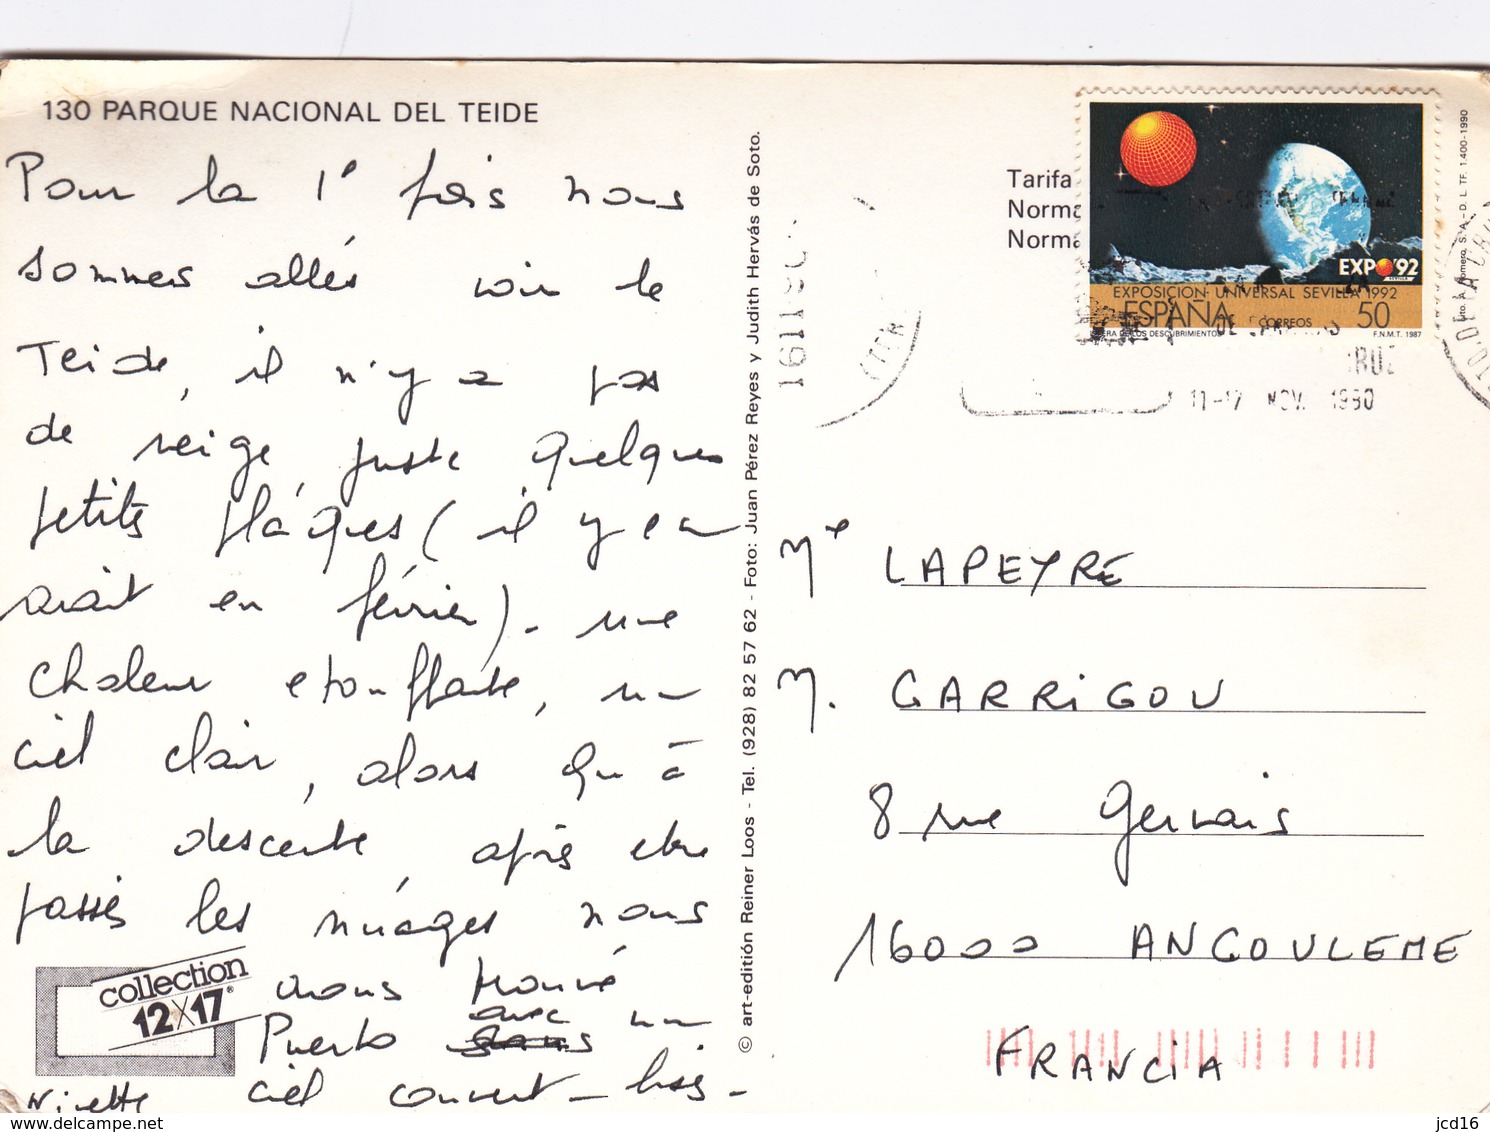 130 PARQUE NACIONAL DEL TEIDE
Pour la 1e fois nous
sommes allés voir le
Teide, il n'y a pas
de neige, juste quelques
petites plaques (il y en
avait en février) - une
chaleur etouffante, un
ciel clair, alors qu'à
la descente, après etre
passés les nuages nous
avons trouvé
Puerto avec un
ciel couvert -
Ninette
collection
12X17®
© art-edición Reiner Loos - Tel. (928) 82 57 62 - Foto: Juan Pérez Reyes y Judith Hervás de Soto.
Tarifa
Norma
Norma
EXPO'92
SEVILLA
EXPOSICION UNIVERSAL SEVILLA 1992
ESPAÑA CORREOS 50
ERA DE LOS DESCUBRIMIENTOS F.N.M.T. 1987
Lito. A. Romero, S. A. - D. L. TF. 1.400-1990
11-17 NOV. 1990
Me LAPEYRE
M. GARRIGOU
8 rue Gervais
16000 ANGOULEME
FRANCIA
www.delcampe.net
jcd16